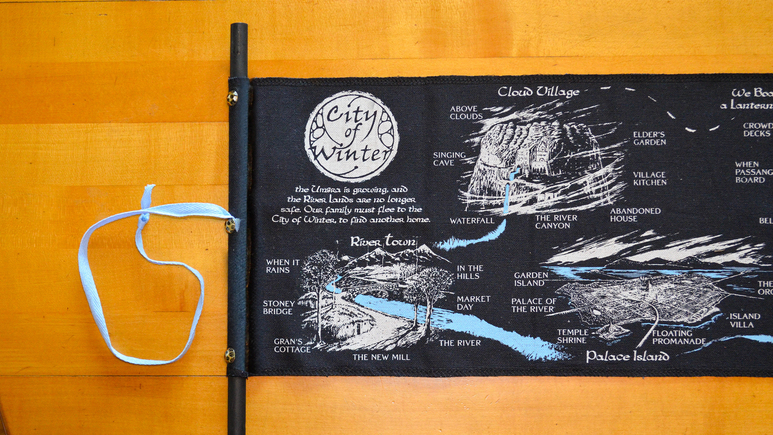 City
of
Winter
the Umbra is growing, and
the River Lands are no longer
safe. Our family must flee to the
City of Winter, to find another home.
Cloud Village
ABOVE
CLOUDS
SINGING
CAVE
WATERFALL
THE RIVER
CANYON
ELDER'S
GARDEN
VILLAGE
KITCHEN
ABANDONED
HOUSE
River Town
WHEN IT
RAINS
STONEY
BRIDGE
GRAN'S
COTTAGE
THE NEW MILL
IN THE
HILLS
MARKET
DAY
THE RIVER
GARDEN
ISLAND
PALACE OF
THE RIVER
TEMPLE
SHRINE
FLOATING
PROMANADE
ISLAND
VILLA
Palace Island
We Boa
a Lantern
CROWD
DECKS
WHEN
PASSANG
BOARD
BEL
THE
ORC